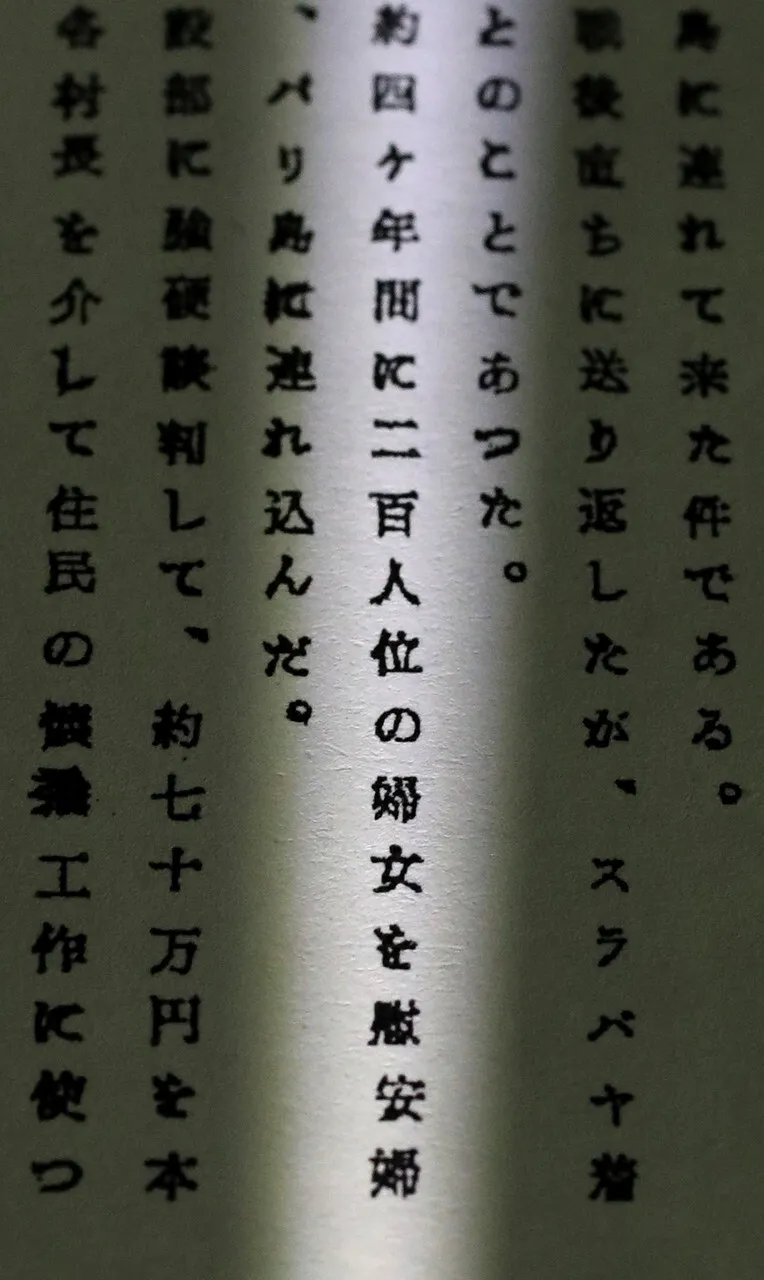 島に連れて来た件である。
戦後直ちに送り返したが、スラバヤ着
とのことであつた。
約四ケ年間に二百人位の婦女を慰安婦
、バリ島に連れ込んだ。
設部に強硬談判して、約七十万円を本
各村長を介して住民の懐柔工作に使つ